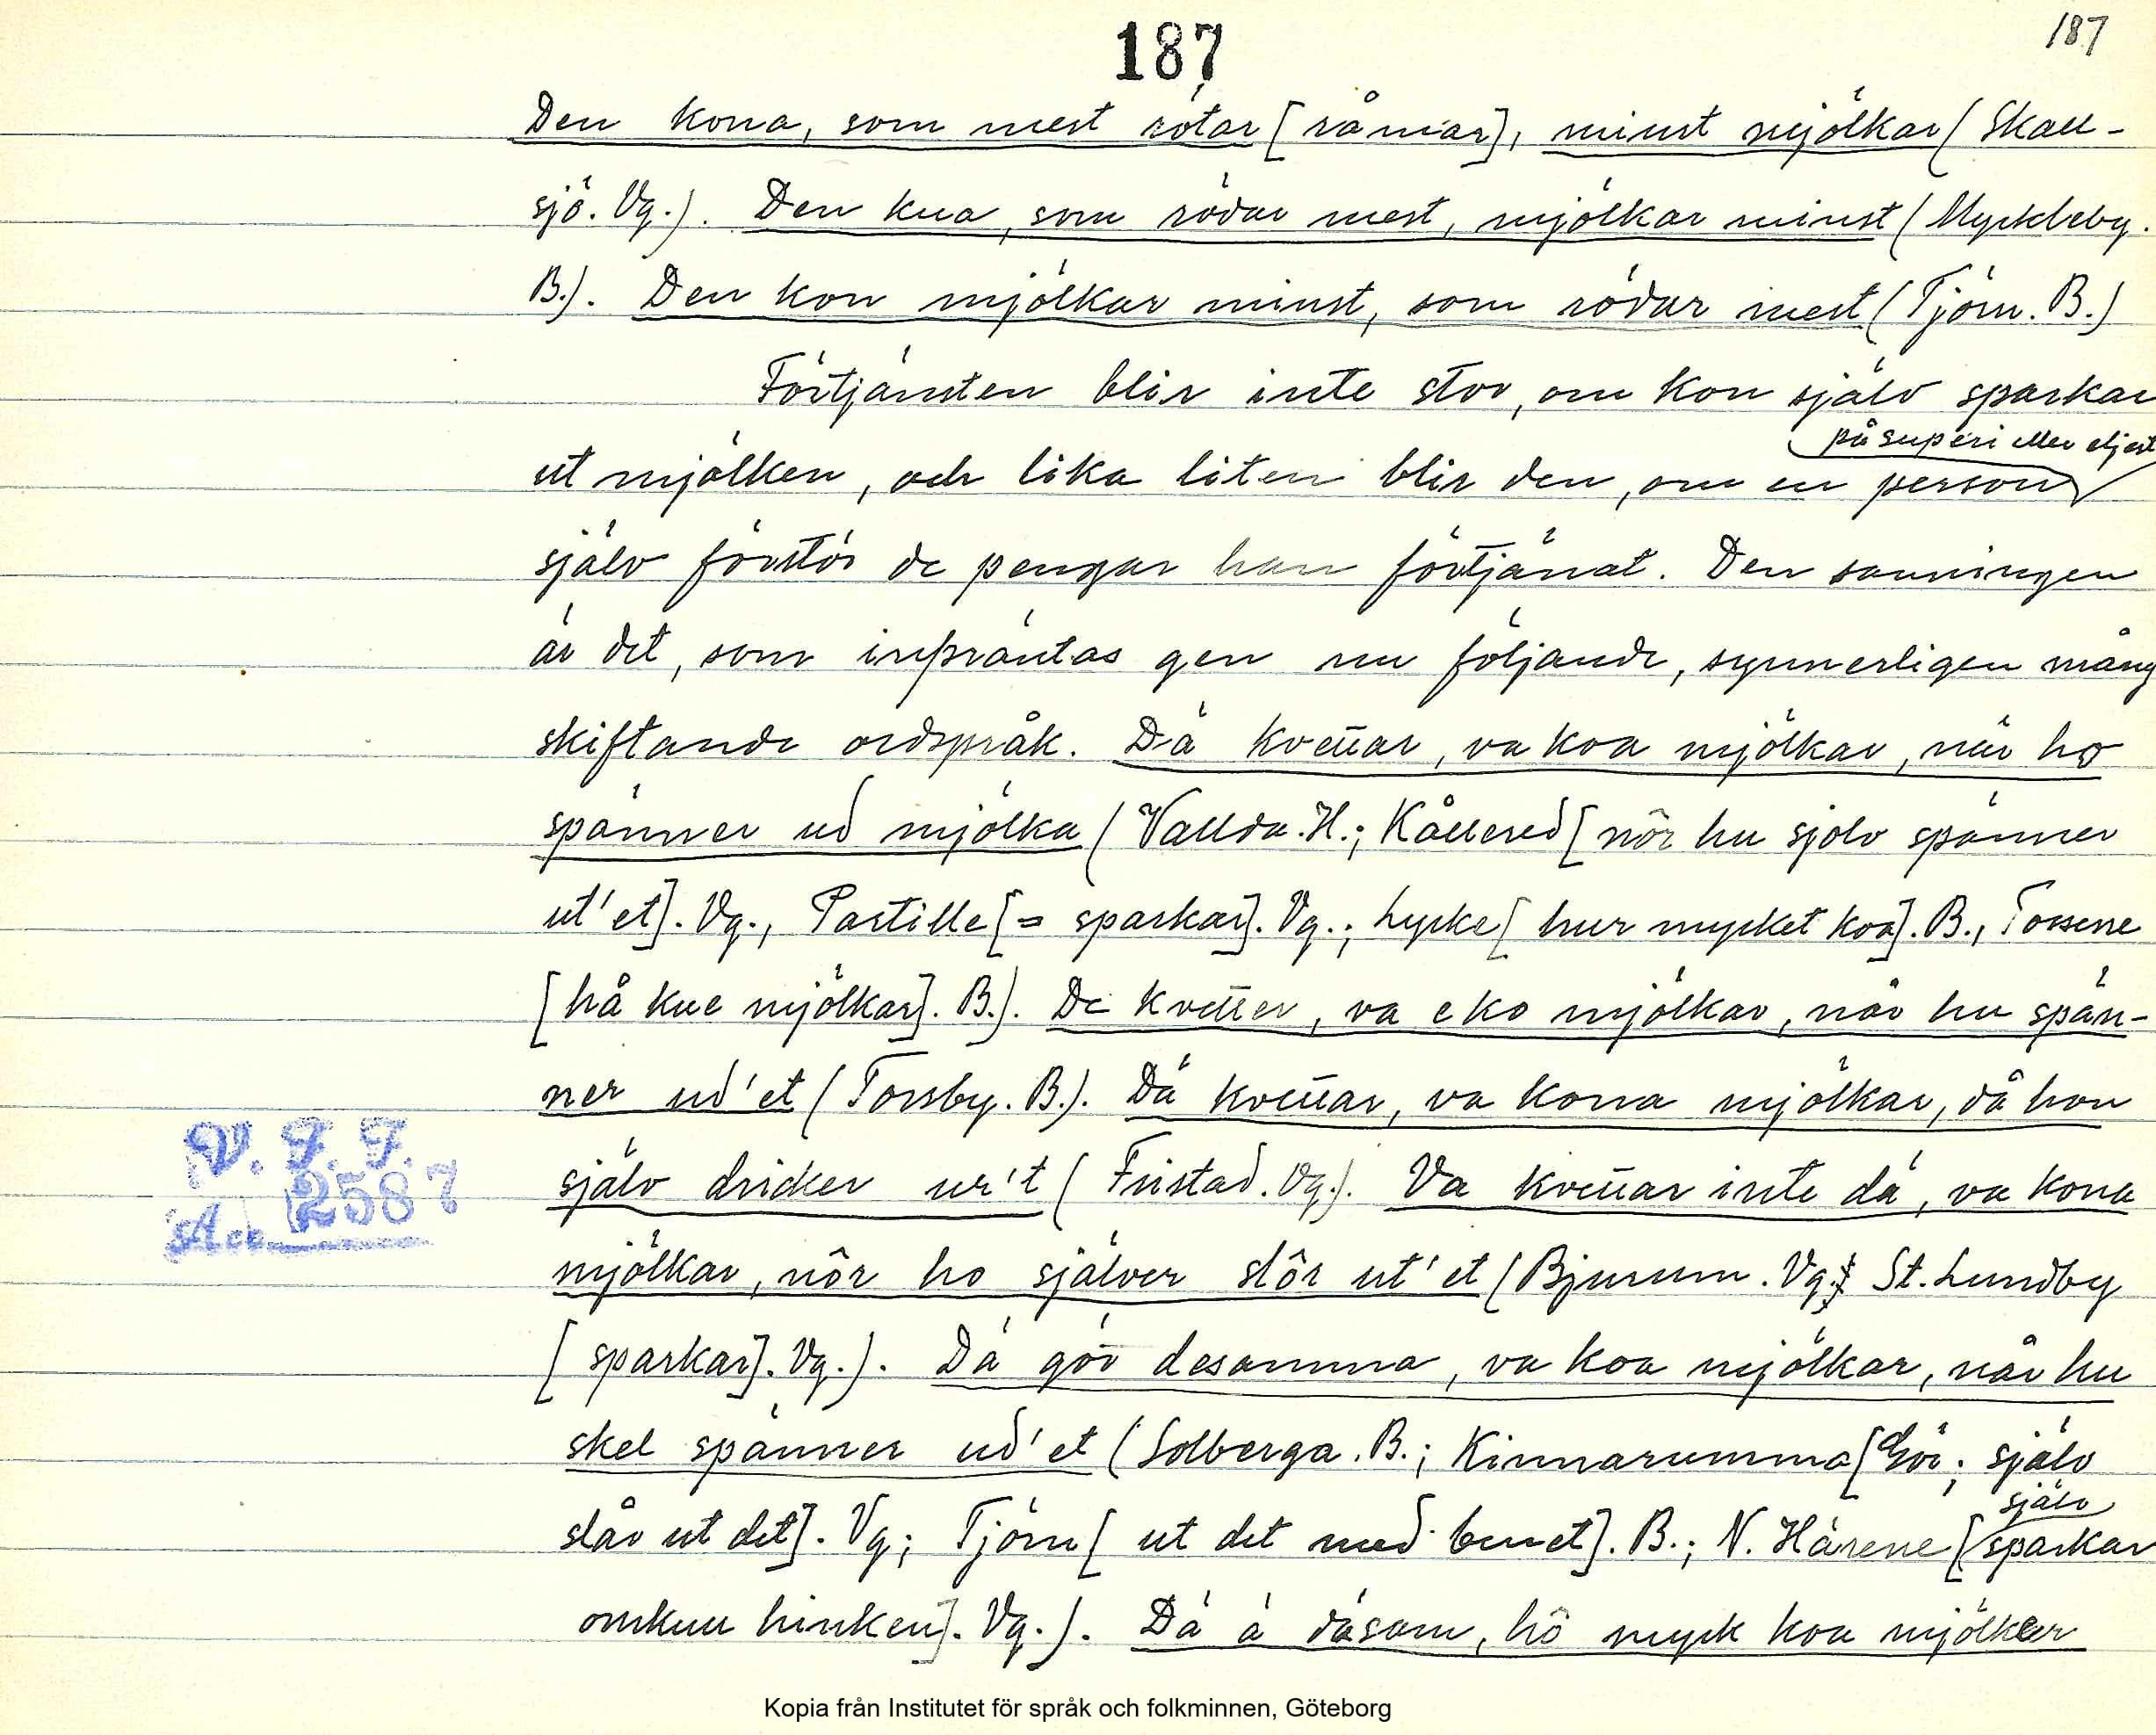 187
187
Den kona, som mest rötar [råmar], minst mjölkar (Skall-
sjö. Vg.). Den kua, som rödar mest, mjölkar minst (Myckleby.
B.). Den kon mjölkar minst, som rödar mest (Tjörn. B.)
Förtjänsten blir inte stor, om kon själv sparkar
på supéri eller eljest
ut mjölken, och lika liten blir den, om en person
själv förstör de pengar han förtjänat. Den sanningen
är det, som inpräntas gen nu följande, synnerligen mång
skiftande ordspråk. Dä kvettar, va koa mjölkar, när ho
spänner ud mjölka (Vallda. H.; Kållered [nôr hu sjölv spänner
ut'et]. Vg., Partille [= sparkar]. Vg.; Lycke [hur mycket koa]. B., Torsene
[hå kue mjölkar]. B.). De kvetter, va e ko mjölkar, når hu spän-
ner ud'et (Torsby. B.). Dä kvettar, va kona mjölkar, då hon
själv dricker ur't (Fristad. Vg.). Va kvettar inte dä, va kona
V. F. F.
Acc 2587
mjölkar, nôr ho själver slôr ut'et (Bjurum. Vg; St. Lundby
[sparkar]. Vg.). Dä gör desamma, va koa mjölkar, når hu
skel spänner ud'et (Solberga. B.; Kinnarumma [Gör; själv
slår ut det]. Vg; Tjörn [ut det med benet]. B.; N. Härene [själv sparkar
omkull hinken]. Vg.). Dä ä däsam, hô myck koa mjölker
Kopia från Institutet för språk och folkminnen, Göteborg